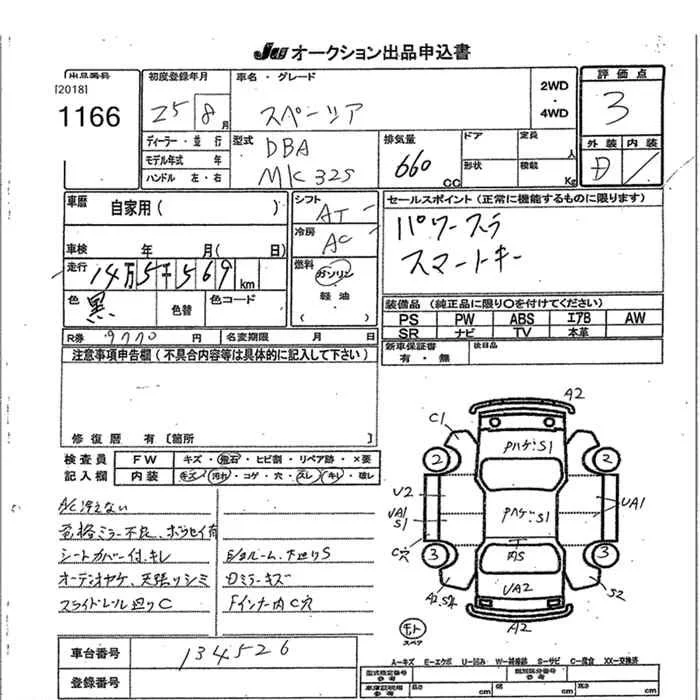 JU オークション出品申込書
出品番号
[2018]
1166
初度登録年月
25 8月
車名・グレード
スペーシア
2WD
・
4WD
評価点
3
外装 内装
D
ディーラー・並 行
モデル年式 年
ハンドル 左・右
型式
DBA
MK32S
排気量
660
CC
ドア
定員
人
形状
積載
Kg
車歴
自家用( )
車検 年 月( 日)
走行
14万5千569km
色
黒
色替
色コード
R券 9770円
名変期限 月 日
シフト
AT
冷房
AC
燃料
ガソリン
軽 油
( )
セールスポイント(正常に機能するものに限ります)
パワースラ
スマートキー
装備品(純正品に限り○を付けてください)
PS PW ABS エアB AW
SR ナビ TV 本革
新車保証書
有 ・ 無
後日品
注意事項申告欄(不具合内容等は具体的に記入して下さい)
修復歴 有[箇所 ]
検査員
記入欄
FW キズ・飛石・ヒビ割・リペア跡・×要
内装 キズ・汚れ・コゲ・穴・スレ・キレ・破レ
A/C冷えない
シートカバー付、キレ
オーディオヤケ、天張りシミ
スライドレール廻りC
Dミラーキズ
Fインナー内C穴
A2
C1
Pハゲ・S1
2
2
U2
UA1
S1
C穴
Pハゲ・S1
UA1
3
3
内S
UA2
S2
A2
モト
スペア
車台番号
134526
登録番号
A-キズ E-エクボ U-凹み W-補修跡 S-サビ C-腐食 XX-交換済
型式指定番号
参考
類別区分番号
参考
車庫証明用
参考
長さ cm
幅 cm
高さ cm